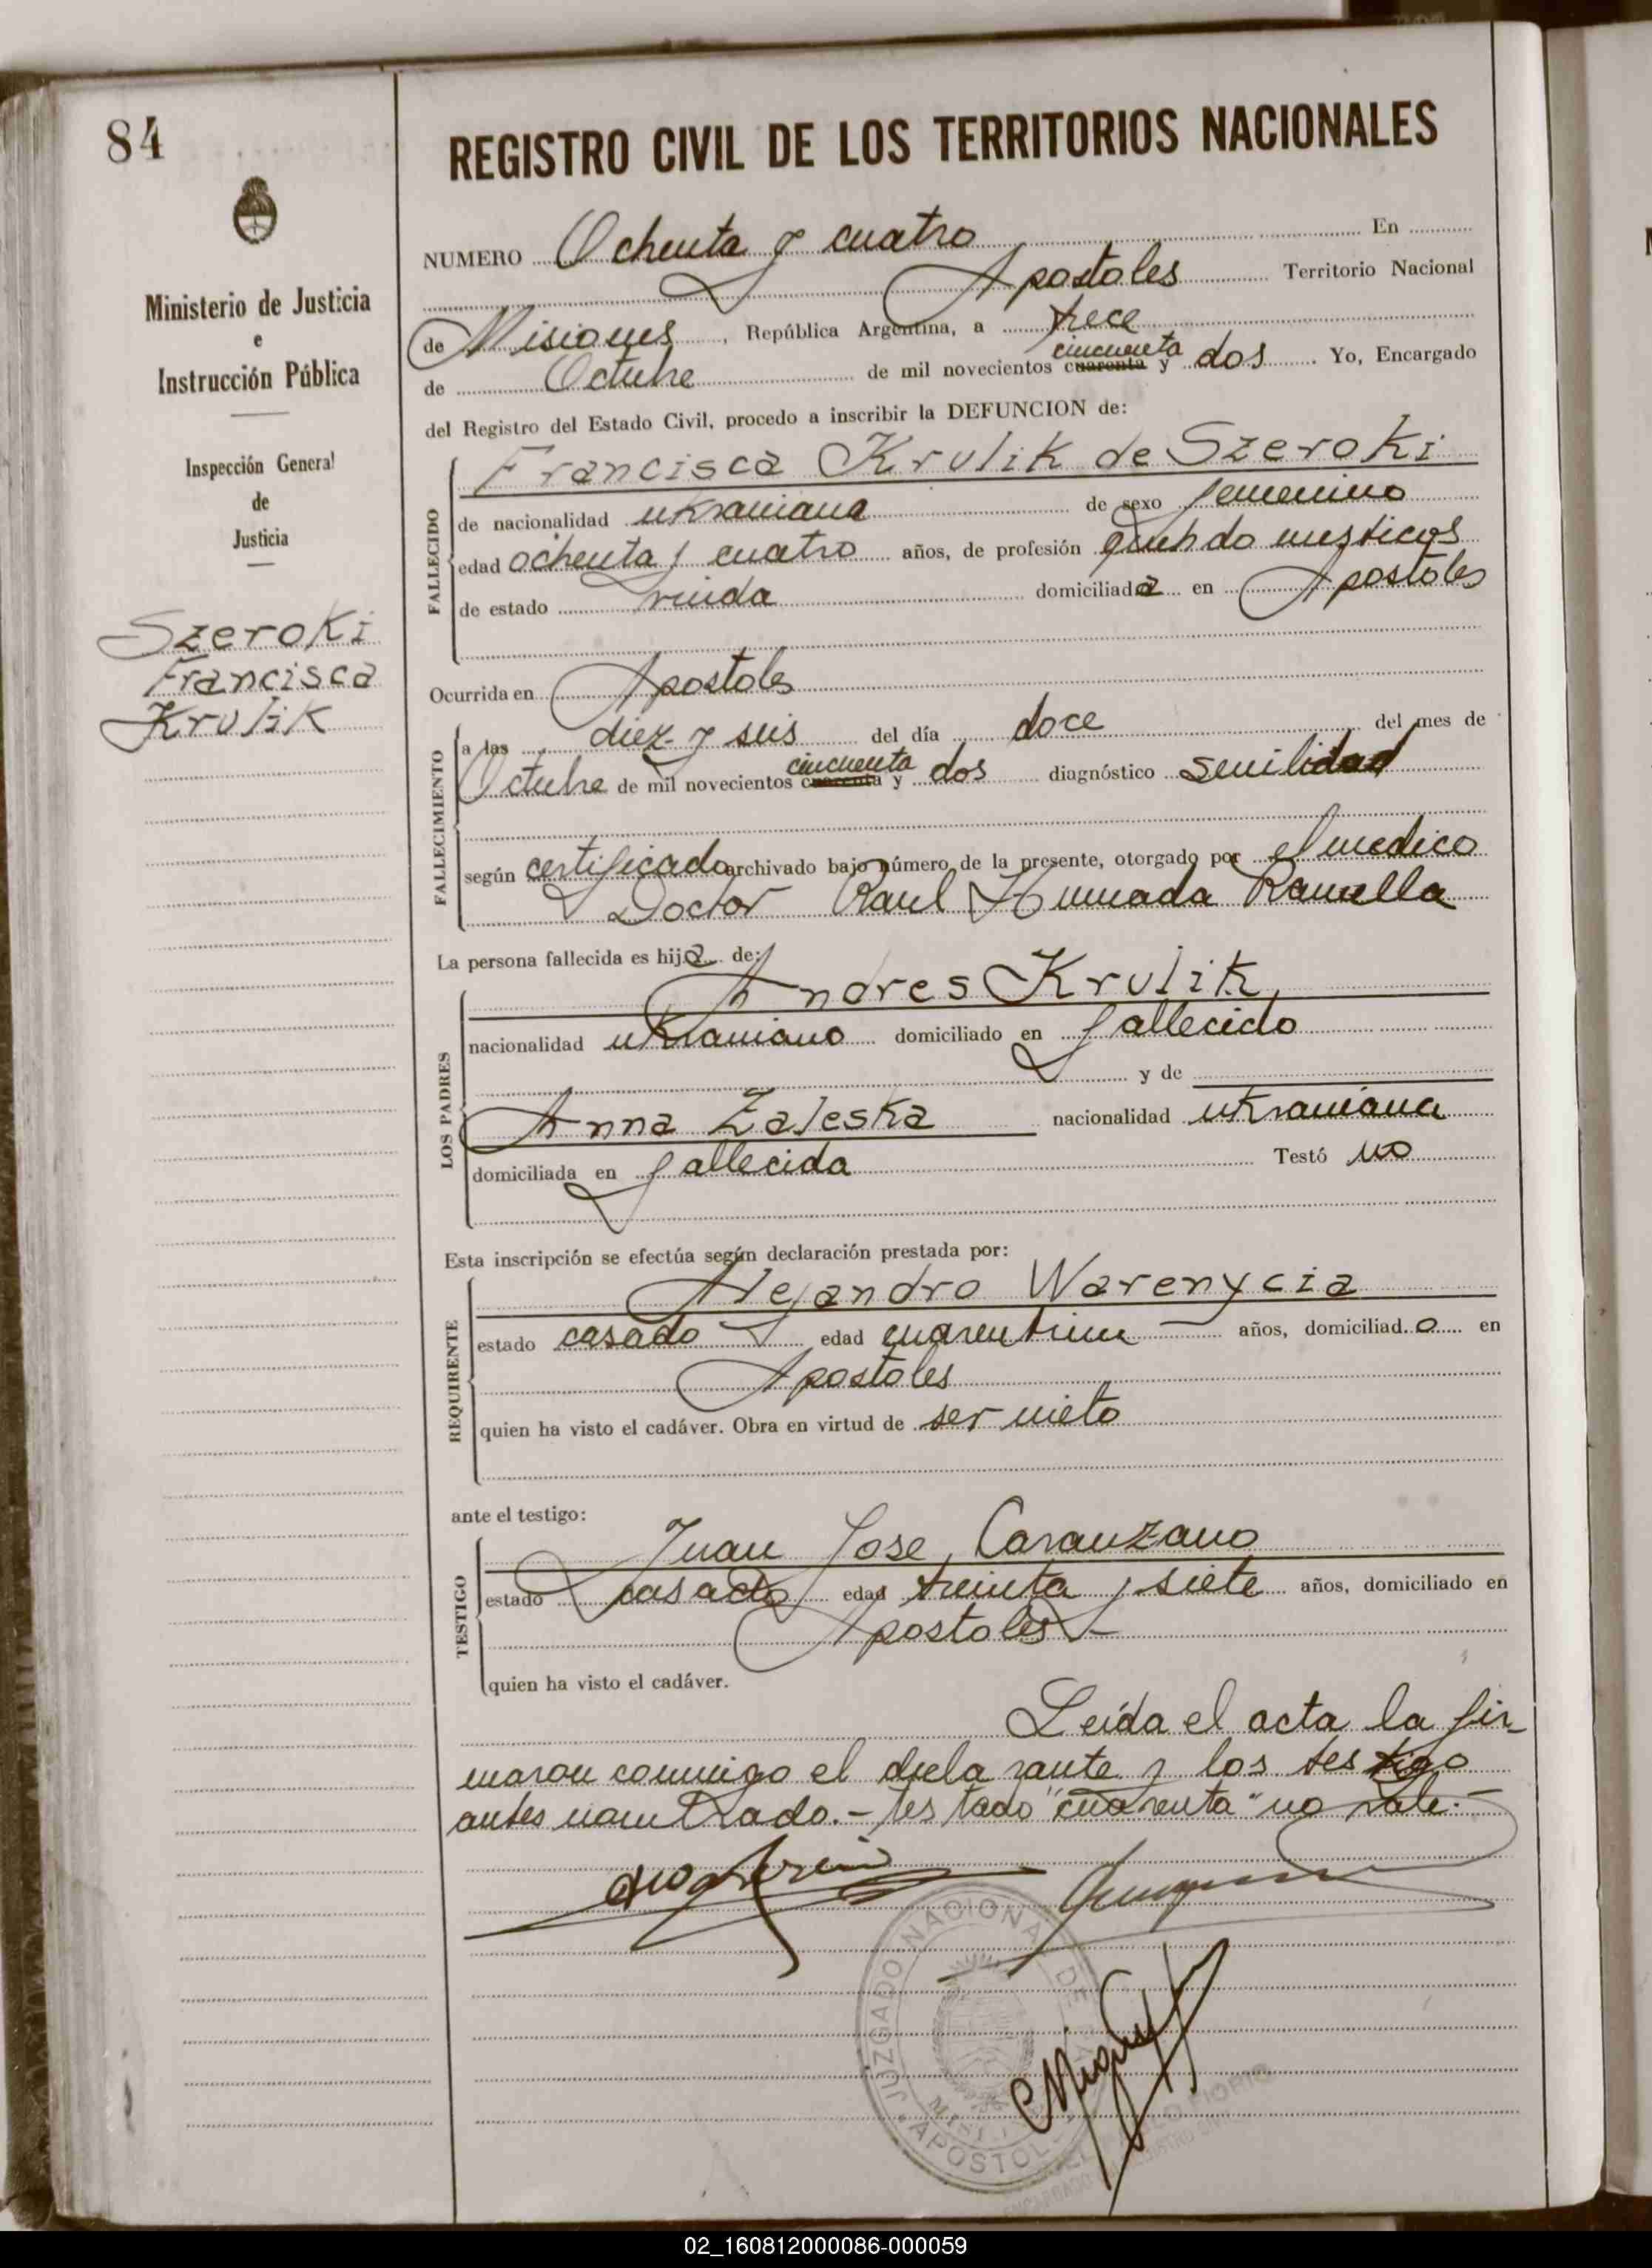 84
REGISTRO CIVIL DE LOS TERRITORIOS NACIONALES
Ministerio de Justicia
e
Instrucción Pública
Inspección General
de
Justicia
Szeroki
Francisca
Krulik
NUMERO Ochenta y cuatro En
Apostoles Territorio Nacional
de Misiones, República Argentina, a trece
cincuenta
de Octubre de mil novecientos cuarenta y dos. Yo, Encargado
del Registro del Estado Civil, procedo a inscribir la DEFUNCION de:
FALLECIDO
Francisca Krulik de Szeroki
de nacionalidad ukraniana de sexo femenino
edad ochenta y cuatro años, de profesión
de estado viuda domiciliada en Apostoles
Ocurrida en Apostoles
FALLECIMIENTO
a las diez y seis del día doce del mes de
cincuenta
Octubre de mil novecientos cuarenta y dos diagnóstico senilidad
según certificado archivado bajo número de la presente, otorgado por el medico
Doctor Raul Ramella
La persona fallecida es hija de:
LOS PADRES
Andres Krulik
nacionalidad ukraniano domiciliado en fallecido
y de
Anna Zaleska nacionalidad ukraniana
domiciliada en fallecida Testó no
Esta inscripción se efectúa según declaración prestada por:
REQUIRENTE
Alejandro Warenycia
estado casado edad años, domiciliado en
Apostoles
quien ha visto el cadáver. Obra en virtud de ser nieto
ante el testigo:
TESTIGO
Juan Jose Caranzano
estado casado edad treinta y siete años, domiciliado en
Apostoles
quien ha visto el cadáver.
Leída el acta la fir
maron conmigo el declarante y los testigo
antes nombrado.- Testado "cuarenta" no vale.-
JUZGADO NACIONAL DE
APOSTOL
02_160812000086-000059